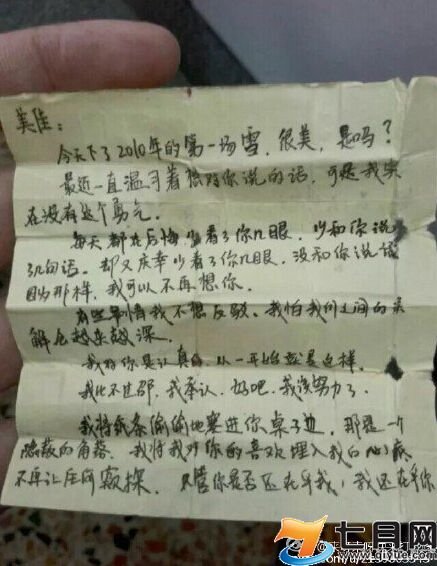 美佳：
今天下了2010年的第一场雪，很美，是吗？
最近一直温习着想对你说的话，可是我实
在没有这个勇气。
每天都在后悔少看了你几眼，少和你说
了几句话。却又庆幸少看了你几眼，没和你说话
因为那样，我可以不再想你。
有些事情我不想反驳。我怕我们之间的误
解会越来越深。
我对你是认真的，从一开始就是这样。
我比不过邵，我承认。好吧，我没努力了。
我将纸条偷偷地塞进你桌子边，那是一个
隐蔽的角落。我将我对你的喜欢埋入我的心底
不再让任何窥探。只管你是否还在乎我，我还在乎你
七月网